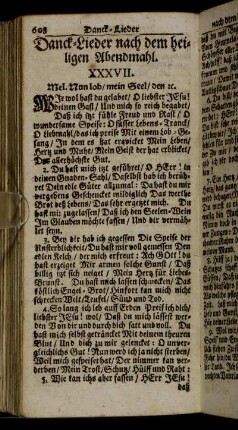 608 Danck-Lieder
Danck-Lieder nach dem hei-
ligen Abendmahl.
XXXVII.
Mel. Nun lob/ mein Seel/ den ꝛc.
Wie wol hast du gelabet/ O liebster JEsu!
deinen Gast/ Und mich so reich begabet/
Daß ich itzt fühle Freud und Rast/ O
wundersame Speise! O süsser Lebens-Tranck!
O Liebmahl/ das ich preise Mit einem Lob-Ge-
sang/ In dem es hat erquicket Mein Leben/
Hertz und Muht/ Mein Geist der hat erblicket/
Das allerhöchste Gut.
2. Du hast mich itzt geführet/ O HErr! in
deinen Gnaden-Sahl/ Daselbst hab ich berüh-
ret Dein edle Güter allzumal: Da hast du mir
vergebens Geschencket mildiglich Das werthe
Brot des Lebens/ Das sehr ergetzt mich. Du
hast mir zugelassen/ Daß ich den Seelen-Wein
Im Glauben möchte fassen/ Und dir vermäh-
let seyn.
3. Bey dir hab ich gegessen Die Speise der
Unsterblichkeit/ Du hast mir voll gemessen Den
edlen Kelch/ der mich erfreut: Ach GOtt! du
hast erzeiget Mir armen solche Gunst/ Daß
billig itzt sich neiget/ Mein Hertz für Liebes-
Brunst. Du hast mich lassen schmecken/ Das
köstlich Engel-Brot/ Hinfort kan mich nicht
schrecken Welt/Teufel/ Sünd und Tod.
4. So lang ich leb auff Erden Preis ich dich/
liebster JEsu! wol/ Daß du mich lässest wer-
den Von dir und durch dich satt und voll. Du
hast mich selbst geträncket Mit deinem theuren
Blut/ Und dich zu mir gelencket: O unver-
gleichlichs Gut! Nun werd ich ja nicht sterben/
Weil mich gespeiset hat/ Der nimmer kan ver-
derben/ Mein Trost/ Schutz/ Hülff und Raht:
5. Wie kan ichs aber fassen/ HErr JEsu!
daß